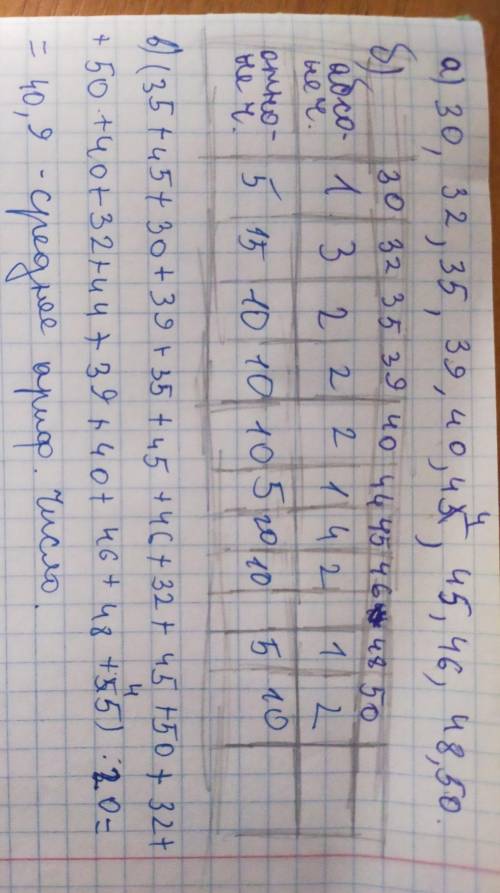 а) 30, 32, 35, 39, 40, 44, 45, 46, 48, 50.
б) 30 32 35 39 40 44 45 46 48 50
абсо-
не ч. 1 3 2 2 2 1 4 2 1 2
отно-
не ч. 5 15 10 10 10 5 20 10 5 10
в) (35+45+30+39+35+45+46+32+45+50+32+
+50+40+32+44+39+40+46+48+45) :20=
= 40,9 - среднее ариф. число.